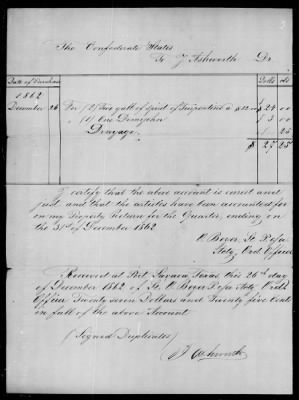 The Confederate States
To J Ashworth Dr.
Date of Purchase Dolls cts
1862
December 26 For (2) Two gall of spirit of turpentine a $12.00 $ 24 00
" (1) One Demijohn 3 00
Drayage 25
$ 27 25
I certify that the above account is correct and
just, and that the articles have been accounted for
on my Property Return for the Quarter, ending on
the 31st of December 1862
Actg. Ord Officer
Received at Port Lavaca, Texas, this 26th day
of December 1862 of Actg Ord
Officer Twenty seven Dollars and Twenty five Cents
in full of the above Account
(Signed Duplicates)
J Ashworth